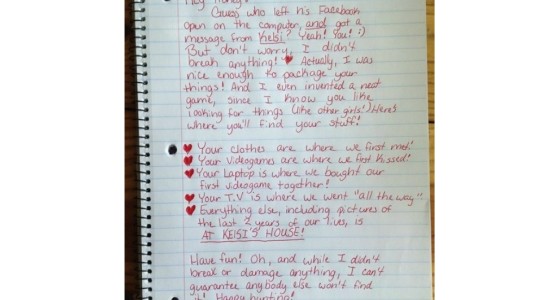 Hey honey!
Guess who left his Facebook
open on the computer, and got a
message from Keisi? Yeah! You! :)
But don't worry, I didn't
break anything! ♥ Actually, I was
nice enough to package your
things! And I even invented a neat
game, since I know you like
looking for things (like other girls!) Here's
where you'll find your stuff!
♥ Your clothes are where we first met!
♥ Your Videogames are where we first kissed!
♥ Your Laptop is where we bought our
first videogame together!
♥ Your T.V is where we went "all the way"
♥ Everything else, including pictures of
the last 2 years of our lives, is
AT KEISI'S HOUSE!
Have fun! Oh, and while I didn't
break or damage anything, I can't
guarantee anybody else won't find
it! Happy hunting!